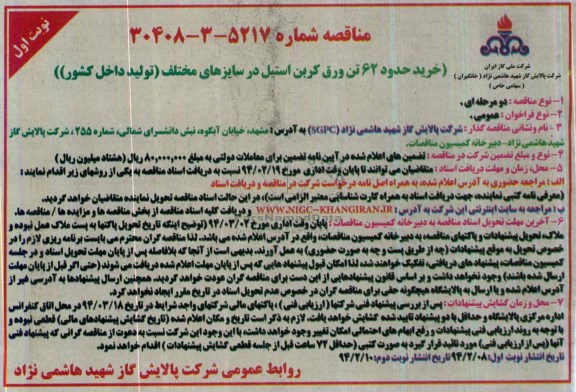 نوبت اول
مناقصه شماره ۵۲۱۷-۳-۳۰۴۰۸
شرکت ملی گاز ایران
شرکت پالایش گاز شهید هاشمی نژاد (خانگیران)
(سهامی خاص)
(خرید حدود ۶۲ تن ورق کربن استیل در سایزهای مختلف (تولید داخل کشور))
۱- نوع مناقصه: دو مرحله ای.
۲- نوع فراخوان: عمومی.
۳- نام ونشانی مناقصه گذار: شرکت پالایش گاز شهید هاشمی نژاد (SGPC) به آدرس: مشهد، خیابان آبکوه، نبش دانشسرای شمالی، شماره ۲۵۵، شرکت پالایش گاز
شهید هاشمی نژاد- دبیرخانه کمیسیون مناقصات.
۴- نوع و مبلغ تضمین شرکت در مناقصه: تضمین های اعلام شده در آیین نامه تضمین برای معاملات دولتی به مبلغ ۸۰,۰۰۰,۰۰۰ ریال (هشتاد میلیون ریال)
۵- محل، زمان و مهلت دریافت اسناد: متقاضیان می توانند تا پایان وقت اداری مورخ ۹۴/۰۲/۱۹ نسبت به دریافت اسناد مناقصه به یکی از روزهای زیر اقدام نمایند:
الف: مراجعه حضوری به آدرس اعلام شده، به همراه اصل نامه درخواست شرکت در مناقصه و دریافت اسناد
(معرفی نامه کتبی نماینده، جهت دریافت اسناد به همراه کارت شناسایی معتبر الزامی است)، در این حالت اسناد مناقصه تحویل نماینده متقاضیان خواهد گردید.
ب: مراجعه به سایت اینترنتی این شرکت به آدرس: WWW.NIGC-KHANGIRAN.IR و دریافت کلیه اسناد مناقصه از بخش مناقصه ها و مزایده ها / مناقصه ها.
۶- آخرین مهلت تحویل اسناد مناقصه به دبیرخانه کمیسیون مناقصات: پایان وقت اداری مورخ ۹۴/۰۳/۰۲ (توضیح اینکه تاریخ تحویل پاکتها به پست ملاک عمل نبوده و
ملاک، تحویل پیشنهادات و پاکتهای مناقصه به دبیرخانه کمیسیون مناقصات، واقع در آدرس اعلام شده می باشد. لذا مناقصه گران محترم می بایست برنامه ریزی لازم را در
خصوص تحویل به موقع پیشنهادات (چه از طریق پست و چه به صورت حضوری) به عمل آورند. بدیهی است از آنجا که بلافاصله پس از پایان مهلت تحویل اسناد و در جلسه
کمیسیون مناقصات، پیشنهاد های دریافتی، تفکیک خواهد شد، لذا امکان قبول پیشنهاد هایی که پس از پایان مهلت اعلام شده دریافت می شوند (حتی اگر قبل از پایان مهلت
ارسال شده باشند) وجود نخواهد داشت و بر اساس قانون پیشنهادهایی از این دست برای مناقصه گران عودت خواهد گردید. همچنین ارسال پیشنهادها به آدرسی غیر از
آدرس اعلام شده و یا ارسال به پالایشگاه هیچگونه حقی برای مناقصه گران در خصوص عدم تحویل اسناد در تاریخ مقرر ایجاد نخواهد کرد.
۷- محل و زمان گشایش پیشنهادات: پس از بررسی پیشنهاد فنی شرکتها (ارزیابی فنی)، پاکتهای مالی شرکتهای واجد شرایط در تاریخ ۹۴/۰۳/۱۸ در محل اتاق کنفرانس
اداره مرکزی پالایشگاه و حداقل با دو پیشنهاد تایید شده گشایش خواهد یافت. لازم به ذکر است تاریخ و مکان اعلام شده (تاریخ گشایش پیشنهادهای مالی) قطعی نبوده و
با توجه به روند ارزیابی فنی پیشنهادات و رفع ابهام های احتمالی امکان تغییر وجود خواهد داشت. با این وجود این شرکت نسبت به دعوت از مناقصه گرانی که پیشنهاد فنی
آنها (پس از ارزیابی فنی) مورد تائید قرار گیرد به صورت کتبی (حداقل ۷۲ ساعت قبل از جلسه قطعی گشایش پیشنهادات) اقدام خواهد نمود.
تاریخ انتشار نوبت اول: ۹۴/۲/۰۸ تاریخ انتشار نوبت دوم: ۹۴/۲/۱۰
روابط عمومی شرکت پالایش گاز شهید هاشمی نژاد